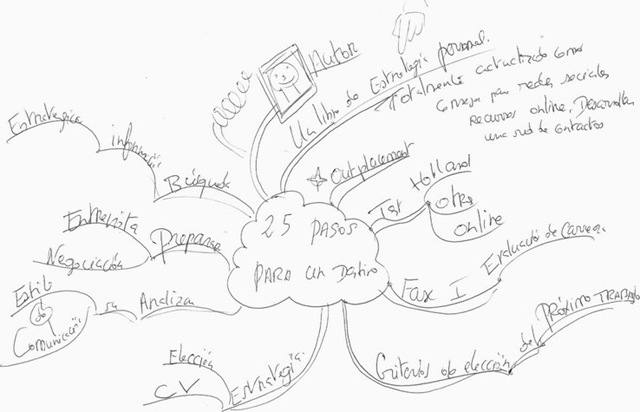 25 PASOS
PARA un Destino
Autor
Un libro de Estrategia personal.
Totalmente actualizado como
Conseja para redes sociales
Recursos online, Desarrollar
una red de Contactos
Outplacement
Test
Holland
otros
online
Fax I
Evaluació de Carrera
Criterios de elección
del
PRÓXIMO TRABAJO
Estrategia
Elección
CV
Analizar
su
Estilo
de
Comunicación
Preparase
Entrevista
Negociación
Búsqueda
información
Estrategica